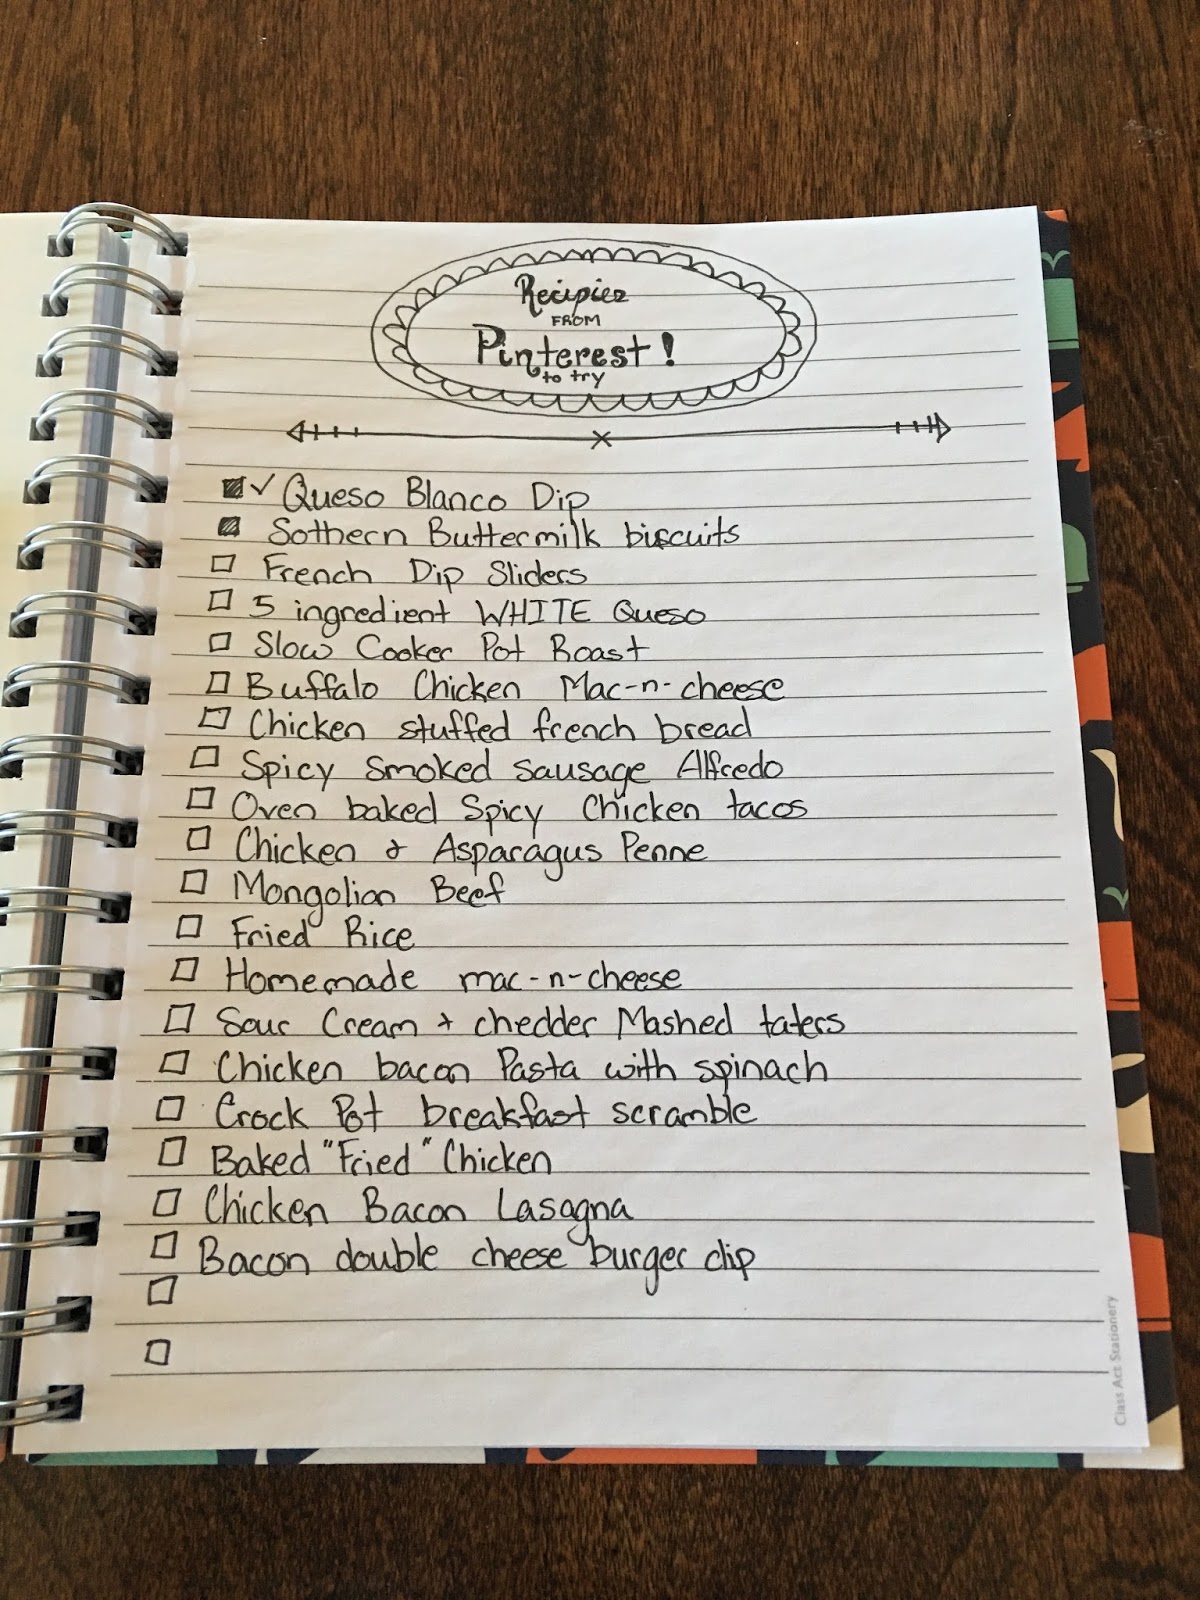 Recipies
FROM
Pinterest!
to try
Queso Blanco Dip
Sothern Buttermilk biscuits
French Dip Sliders
5 ingredient WHITE Queso
Slow Cooker Pot Roast
Buffalo Chicken Mac-n-cheese
Chicken stuffed french bread
Spicy Smoked sausage Alfredo
Oven baked Spicy Chicken tacos
Chicken & Asparagus Penne
Mongolian Beef
Fried Rice
Homemade mac-n-cheese
Sour Cream + chedder Mashed taters
Chicken bacon Pasta with spinach
Crock Pot breakfast scramble
Baked "Fried" Chicken
Chicken Bacon Lasagna
Bacon double cheese burger dip
Class Act Stationery